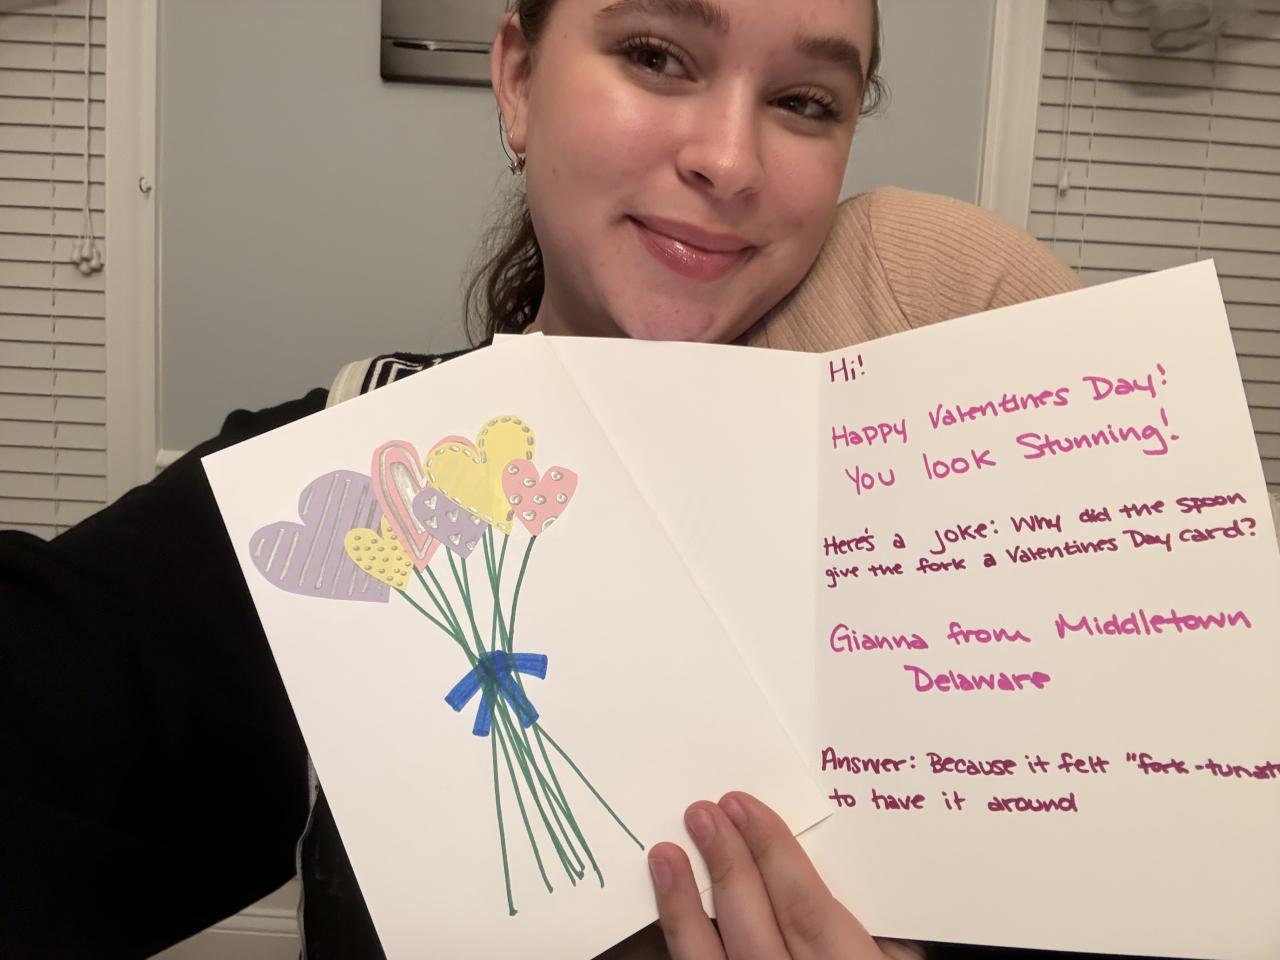 Hi!
Happy Valentines Day!
You look Stunning!
Here's a joke: Why did the spoon
give the fork a Valentines Day card?
Gianna from Middletown
Delaware
Answer: Because it felt "fork-tunat
to have it around